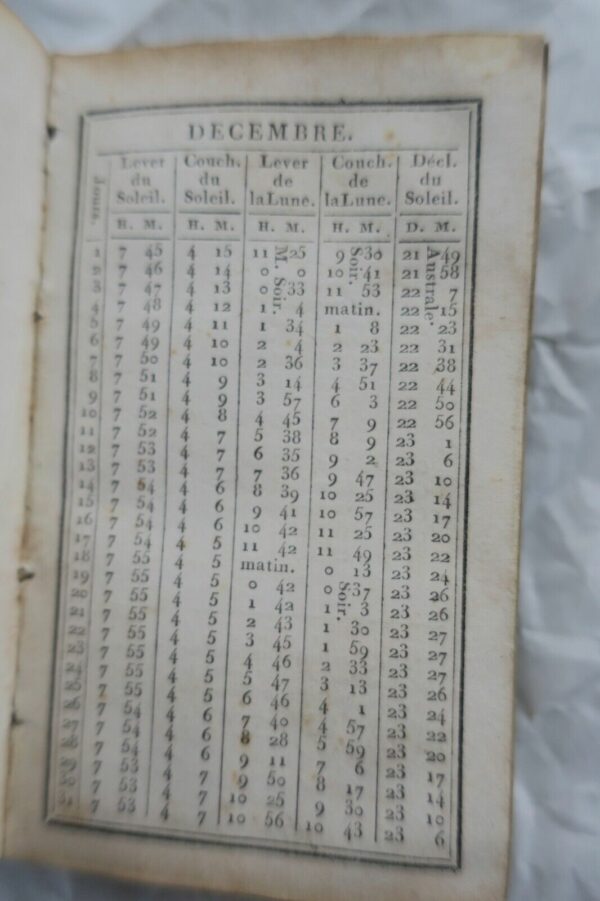 DECEMBRE.
Jours. Lever Couch. Lever Couch. Décl.
du du de de du
Soleil. Soleil. laLune. laLune. Soleil.
H. M. H. M. H. M. H. M. D. M.
1 7 45 4 15 11 M. 25 9 Soir. 30 21 Australe. 49
2 7 46 4 14 0 Soir. 0 10 41 21 58
3 7 47 4 13 0 33 11 53 22 7
4 7 48 4 12 1 4 matin. 22 15
5 7 49 4 11 1 34 1 8 22 23
6 7 49 4 10 2 4 2 23 22 31
7 7 50 4 10 2 36 3 37 22 38
8 7 51 4 9 3 14 4 51 22 44
9 7 51 4 9 3 57 6 3 22 50
10 7 52 4 8 4 45 7 9 22 56
11 7 52 4 7 5 38 8 9 23 1
12 7 53 4 7 6 35 9 2 23 6
13 7 53 4 7 7 36 9 47 23 10
14 7 54 4 6 8 39 10 25 23 14
15 7 54 4 6 9 41 10 57 23 17
16 7 54 4 6 10 42 11 25 23 20
17 7 54 4 5 11 42 11 49 23 22
18 7 55 4 5 matin. 0 13 23 24
19 7 55 4 5 0 42 0 Soir. 37 23 26
20 7 55 4 5 1 42 1 3 23 26
21 7 55 4 5 2 43 1 30 23 27
22 7 55 4 5 3 45 1 59 23 27
23 7 55 4 5 4 46 2 33 23 27
24 7 55 4 5 5 47 3 13 23 26
25 7 55 4 6 6 46 4 1 23 24
26 7 54 4 6 7 40 4 57 23 22
27 7 54 4 6 8 28 5 59 23 20
28 7 54 4 6 9 11 7 6 23 17
29 7 53 4 7 9 50 8 17 23 14
30 7 53 4 7 10 25 9 30 23 10
31 7 53 4 7 10 56 10 43 23 6